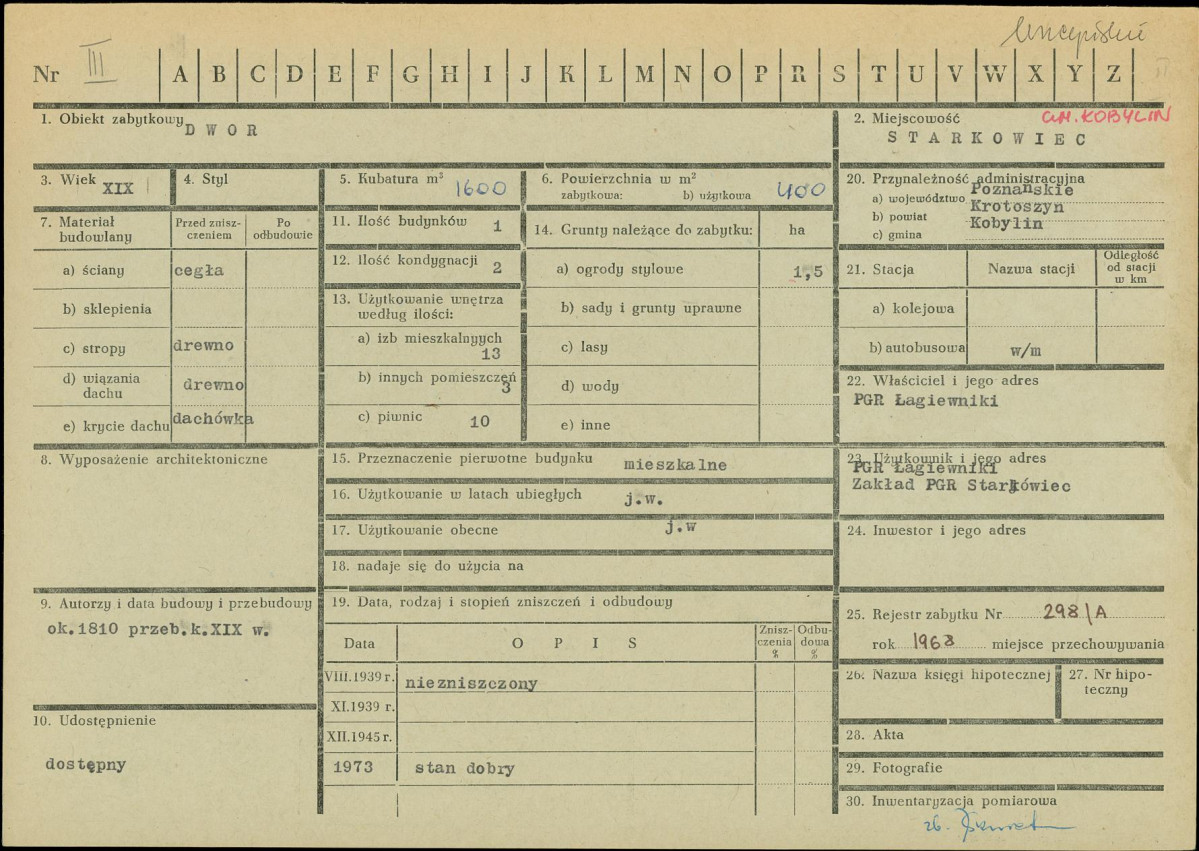 Nr III A B C D E F G H I J K L M N O P R S T U V W X Y Z
1. Obiekt zabytkowy
DWOR
2. Miejscowość
GM. KOBYLIN
STARKOWIEC
3. Wiek XIX
4. Styl
5. Kubatura m³ 1600
6. Powierzchnia w m²
zabytkowa: b) użytkowa 400
20. Przynależność administracyjna
a) województwo Poznańskie
b) powiat Krotoszyn
c) gmina Kobylin
7. Materiał budowlany
Przed zniszczeniem
Po odbudowie
a) ściany cegła
b) sklepienia
c) stropy drewno
d) wiązania dachu drewno
e) krycie dachu dachówka
11. Ilość budynków 1
12. Ilość kondygnacji 2
13. Użytkowanie wnętrza
według ilości:
a) izb mieszkalnyych
13
b) innych pomieszczeń
3
c) piwnic 10
14. Grunty należące do zabytku: ha
a) ogrody stylowe 1,5
b) sady i grunty uprawne
c) lasy
d) wody
e) inne
21. Stacja
Nazwa stacji
Odległość
od stacji
w km
a) kolejowa
b) autobusowa w/m
22. Właściciel i jego adres
PGR Łagiewniki
8. Wyposażenie architektoniczne
15. Przeznaczenie pierwotne budynku mieszkalne
16. Użytkowanie w latach ubiegłych j.w.
17. Użytkowanie obecne j.w
18. nadaje się do użycia na
23. Użytkownik i jego adres
PGR Łagiewniki
Zakład PGR Starkówiec
24. Inwestor i jego adres
9. Autorzy i data budowy i przebudowy
ok.1810 przeb.k.XIX w.
19. Data, rodzaj i stopień zniszczeń i odbudowy
Data
O P I S
Znisz-
czenia
%
Odbu-
dowa
%
VIII.1939 r. niezniszczony
XI.1939 r.
XII.1945 r.
1973 stan dobry
25. Rejestr zabytku Nr 298/A
rok 1968 miejsce przechowywania
26. Nazwa księgi hipotecznej
27. Nr hipo-
teczny
10. Udostępnienie
dostępny
28. Akta
29. Fotografie
30. Inwentaryzacja pomiarowa